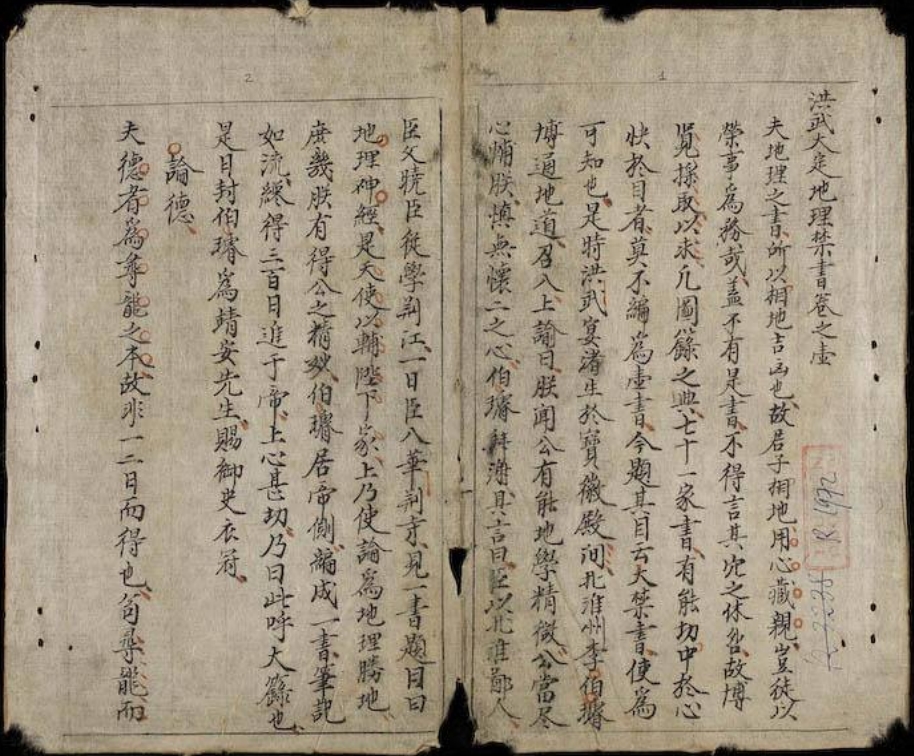 洪武大定地理禁書卷之壹
夫地理之書所以相地吉凶也故君子相地用心藏親豈徒以
榮事爲務哉盖不有是書不得言其穴之休咎故博
覓採取以求凡圖籙之典七十一家書有能切中於心
快於目者莫不編爲壹書今題其目云大禁書使爲
可知也是時洪武宴渚生於寶徽殿间北淮州李伯璿
博通地道召入上諭曰朕闻公有能地學精微公當尽
心俌朕慎無懷二之心伯璿拜謝具言曰臣以北淮鄭人
臣文曉臣從學荆江一日臣入華荆寺見一書題目曰
地理神經是天使以輔陛下家上乃使論爲地理勝地
庶幾朕有得公之精妙伯璿居帝側編成一書筆記
如流纔得三百日進于帝上心甚切乃曰此呼大籙也
是日封伯璿爲靖安先生賜御史衣冠
論德
夫德者爲尋龍之本故非一二日而得也苟尋龍而
1
2
R.1692